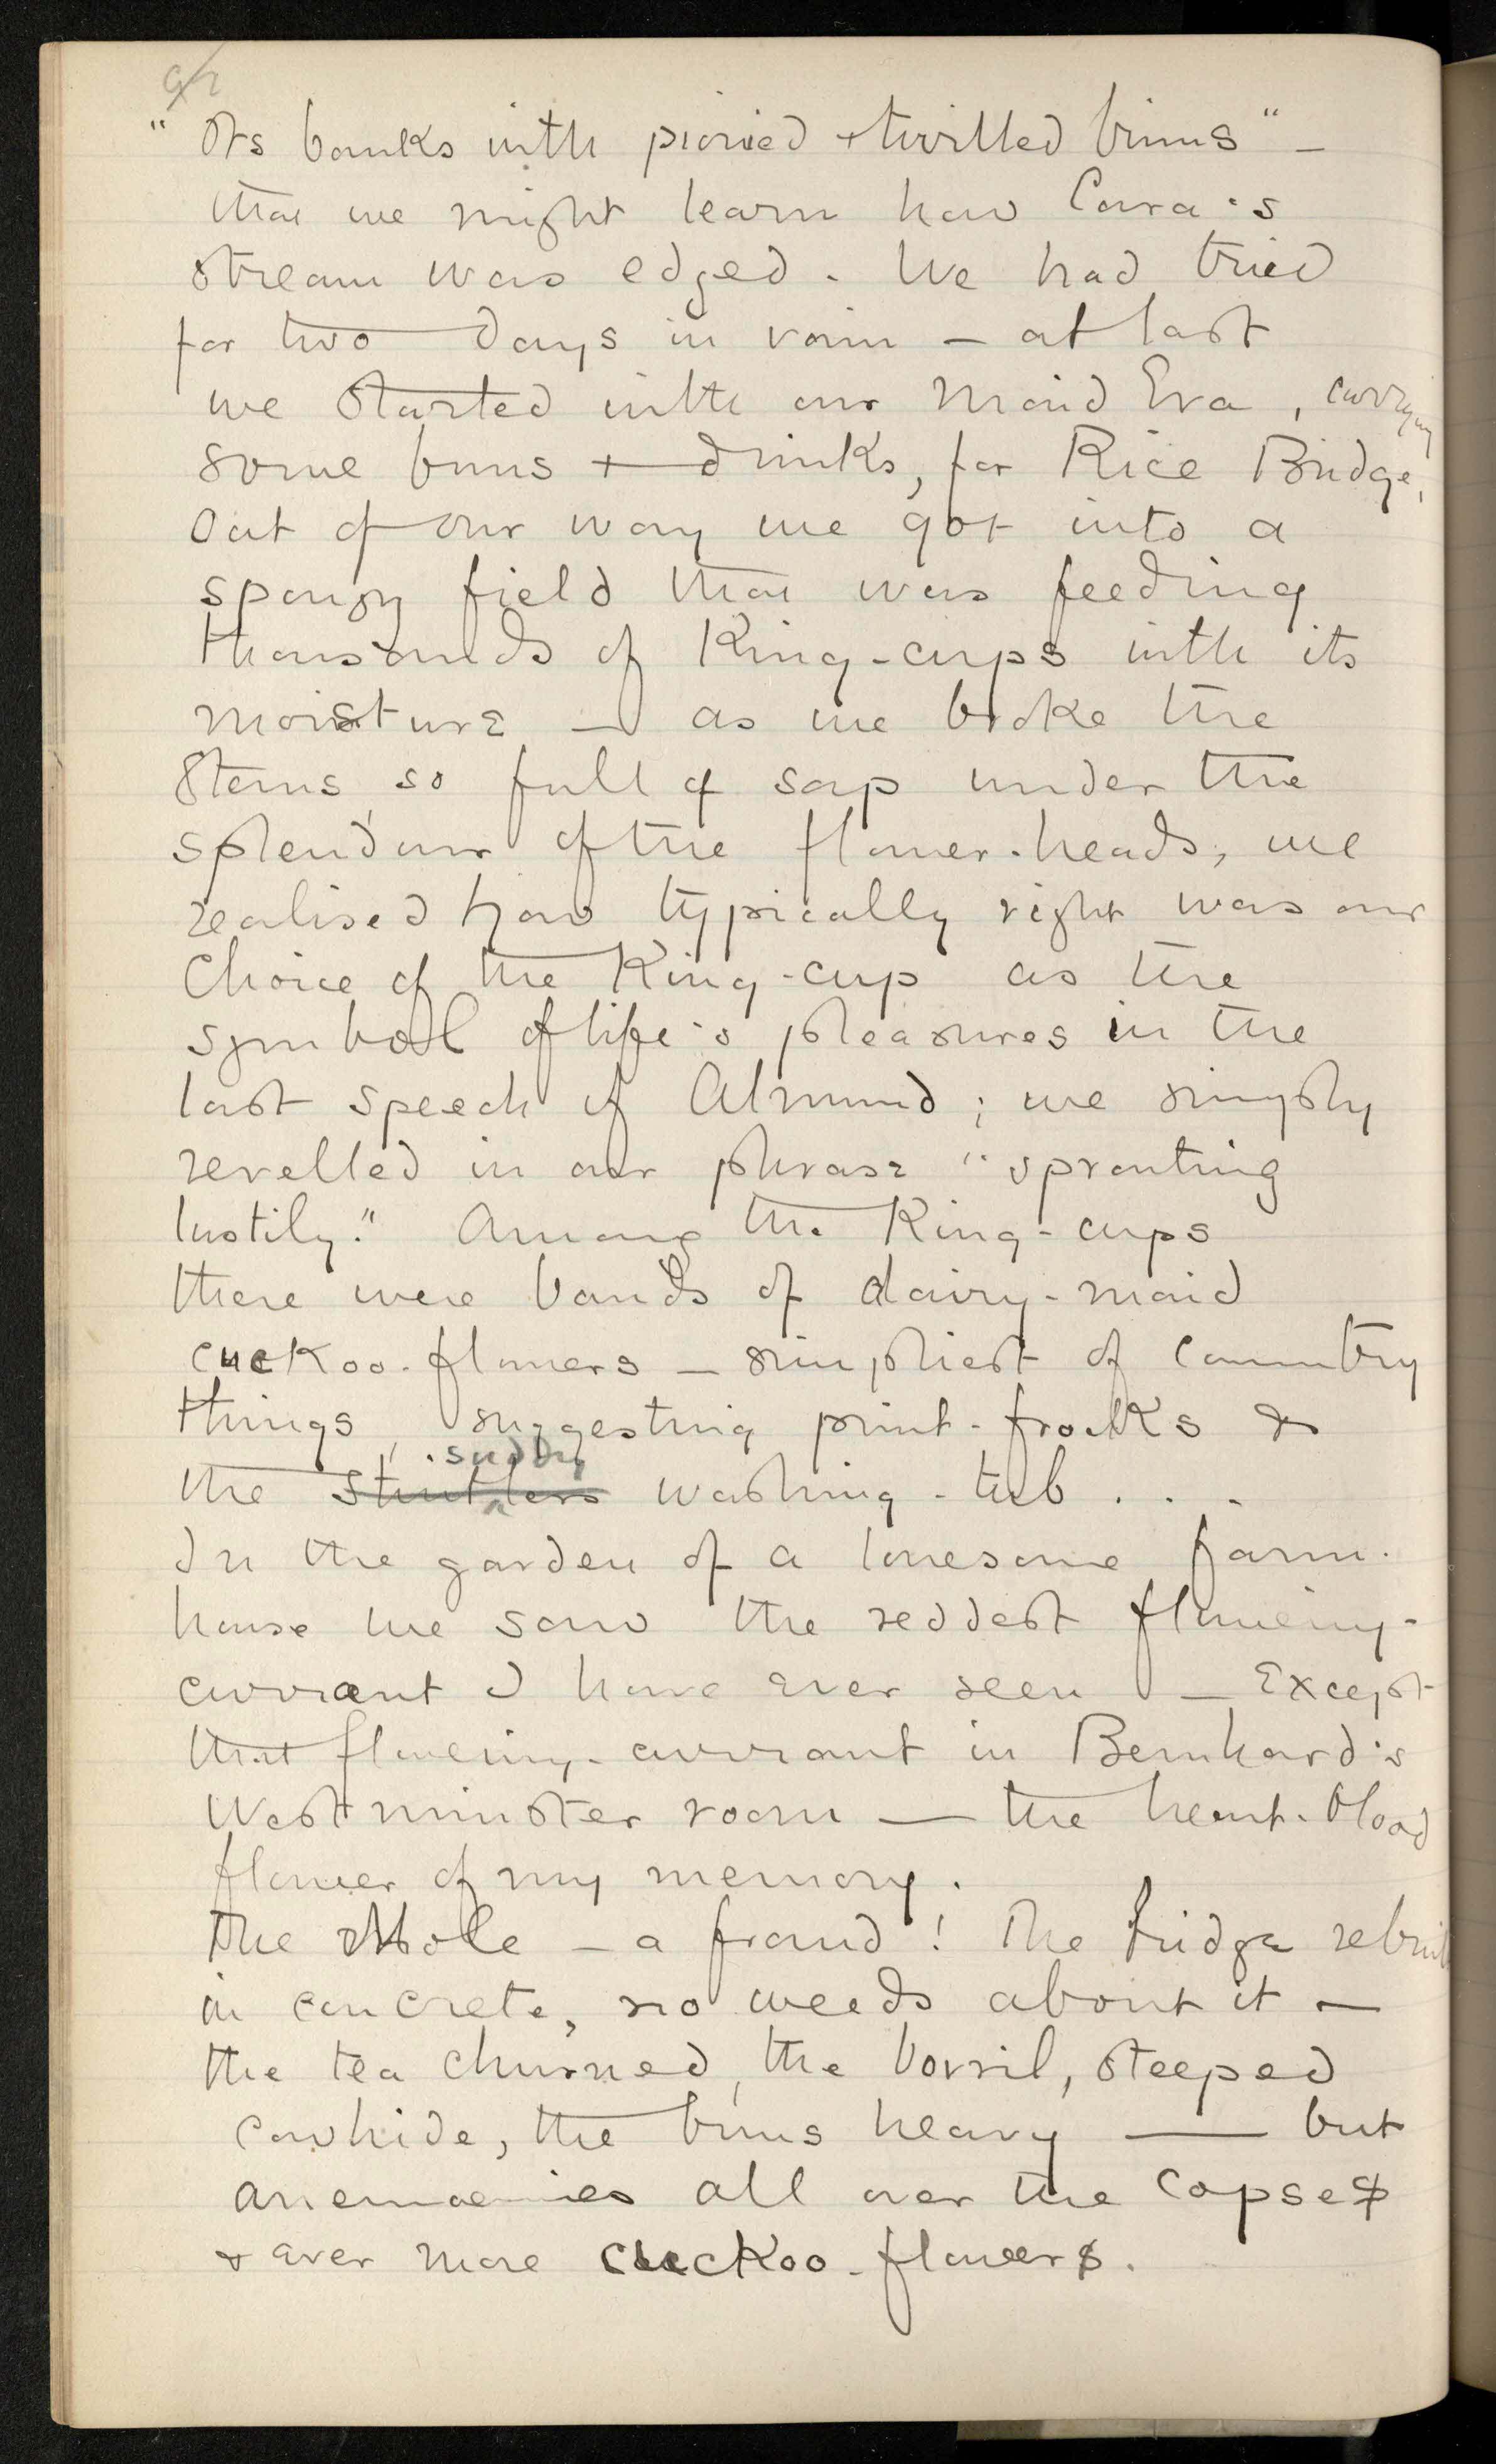 92
"Its banks with pionied + twilled brims" –
that we might learn how Cara's
stream was edged. We had tried
for two days in vain – at last
we started with our maid Eva, carrying
some buns + drinks, for Rice Bridge,
Out of our way we got into a
spongy field that was feeding
thousands of King-cups with its
moisture – as we broke the
stems so full of sap under the
splendour of the flower-heads, we
realised how typically right was our
choice of the King-cup as the
symbol of life's pleasures in the
last speech of Almund; we simply
revelled in our phrase "sprouting
lustily." Among the King-cups
there were bands of dairy-maid
cuckoo-flowers – simpliest of country
things, suggesting print-frocks &
sudsy
the washing-tub . . .
In the garden of a lonesome farm-
house we saw the reddest flowering-
currant I have ever seen – Except
that flowering-currant in Bernhard's
Westminster room – the heart-blood
flower of my memory.
The Mole – a fraud! The bridge rebuilt
in concrete, no weeds about it –
the tea churned, the bovril, steeped
cowhide, the buns heavy — but
anemonies all over the copses
& ever more cuckoo-flowers.